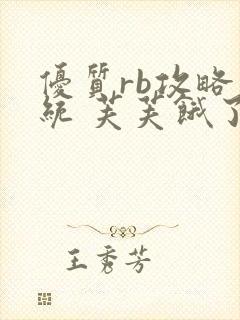 優質rb攻略
統 芙芙餓了
王秀芳